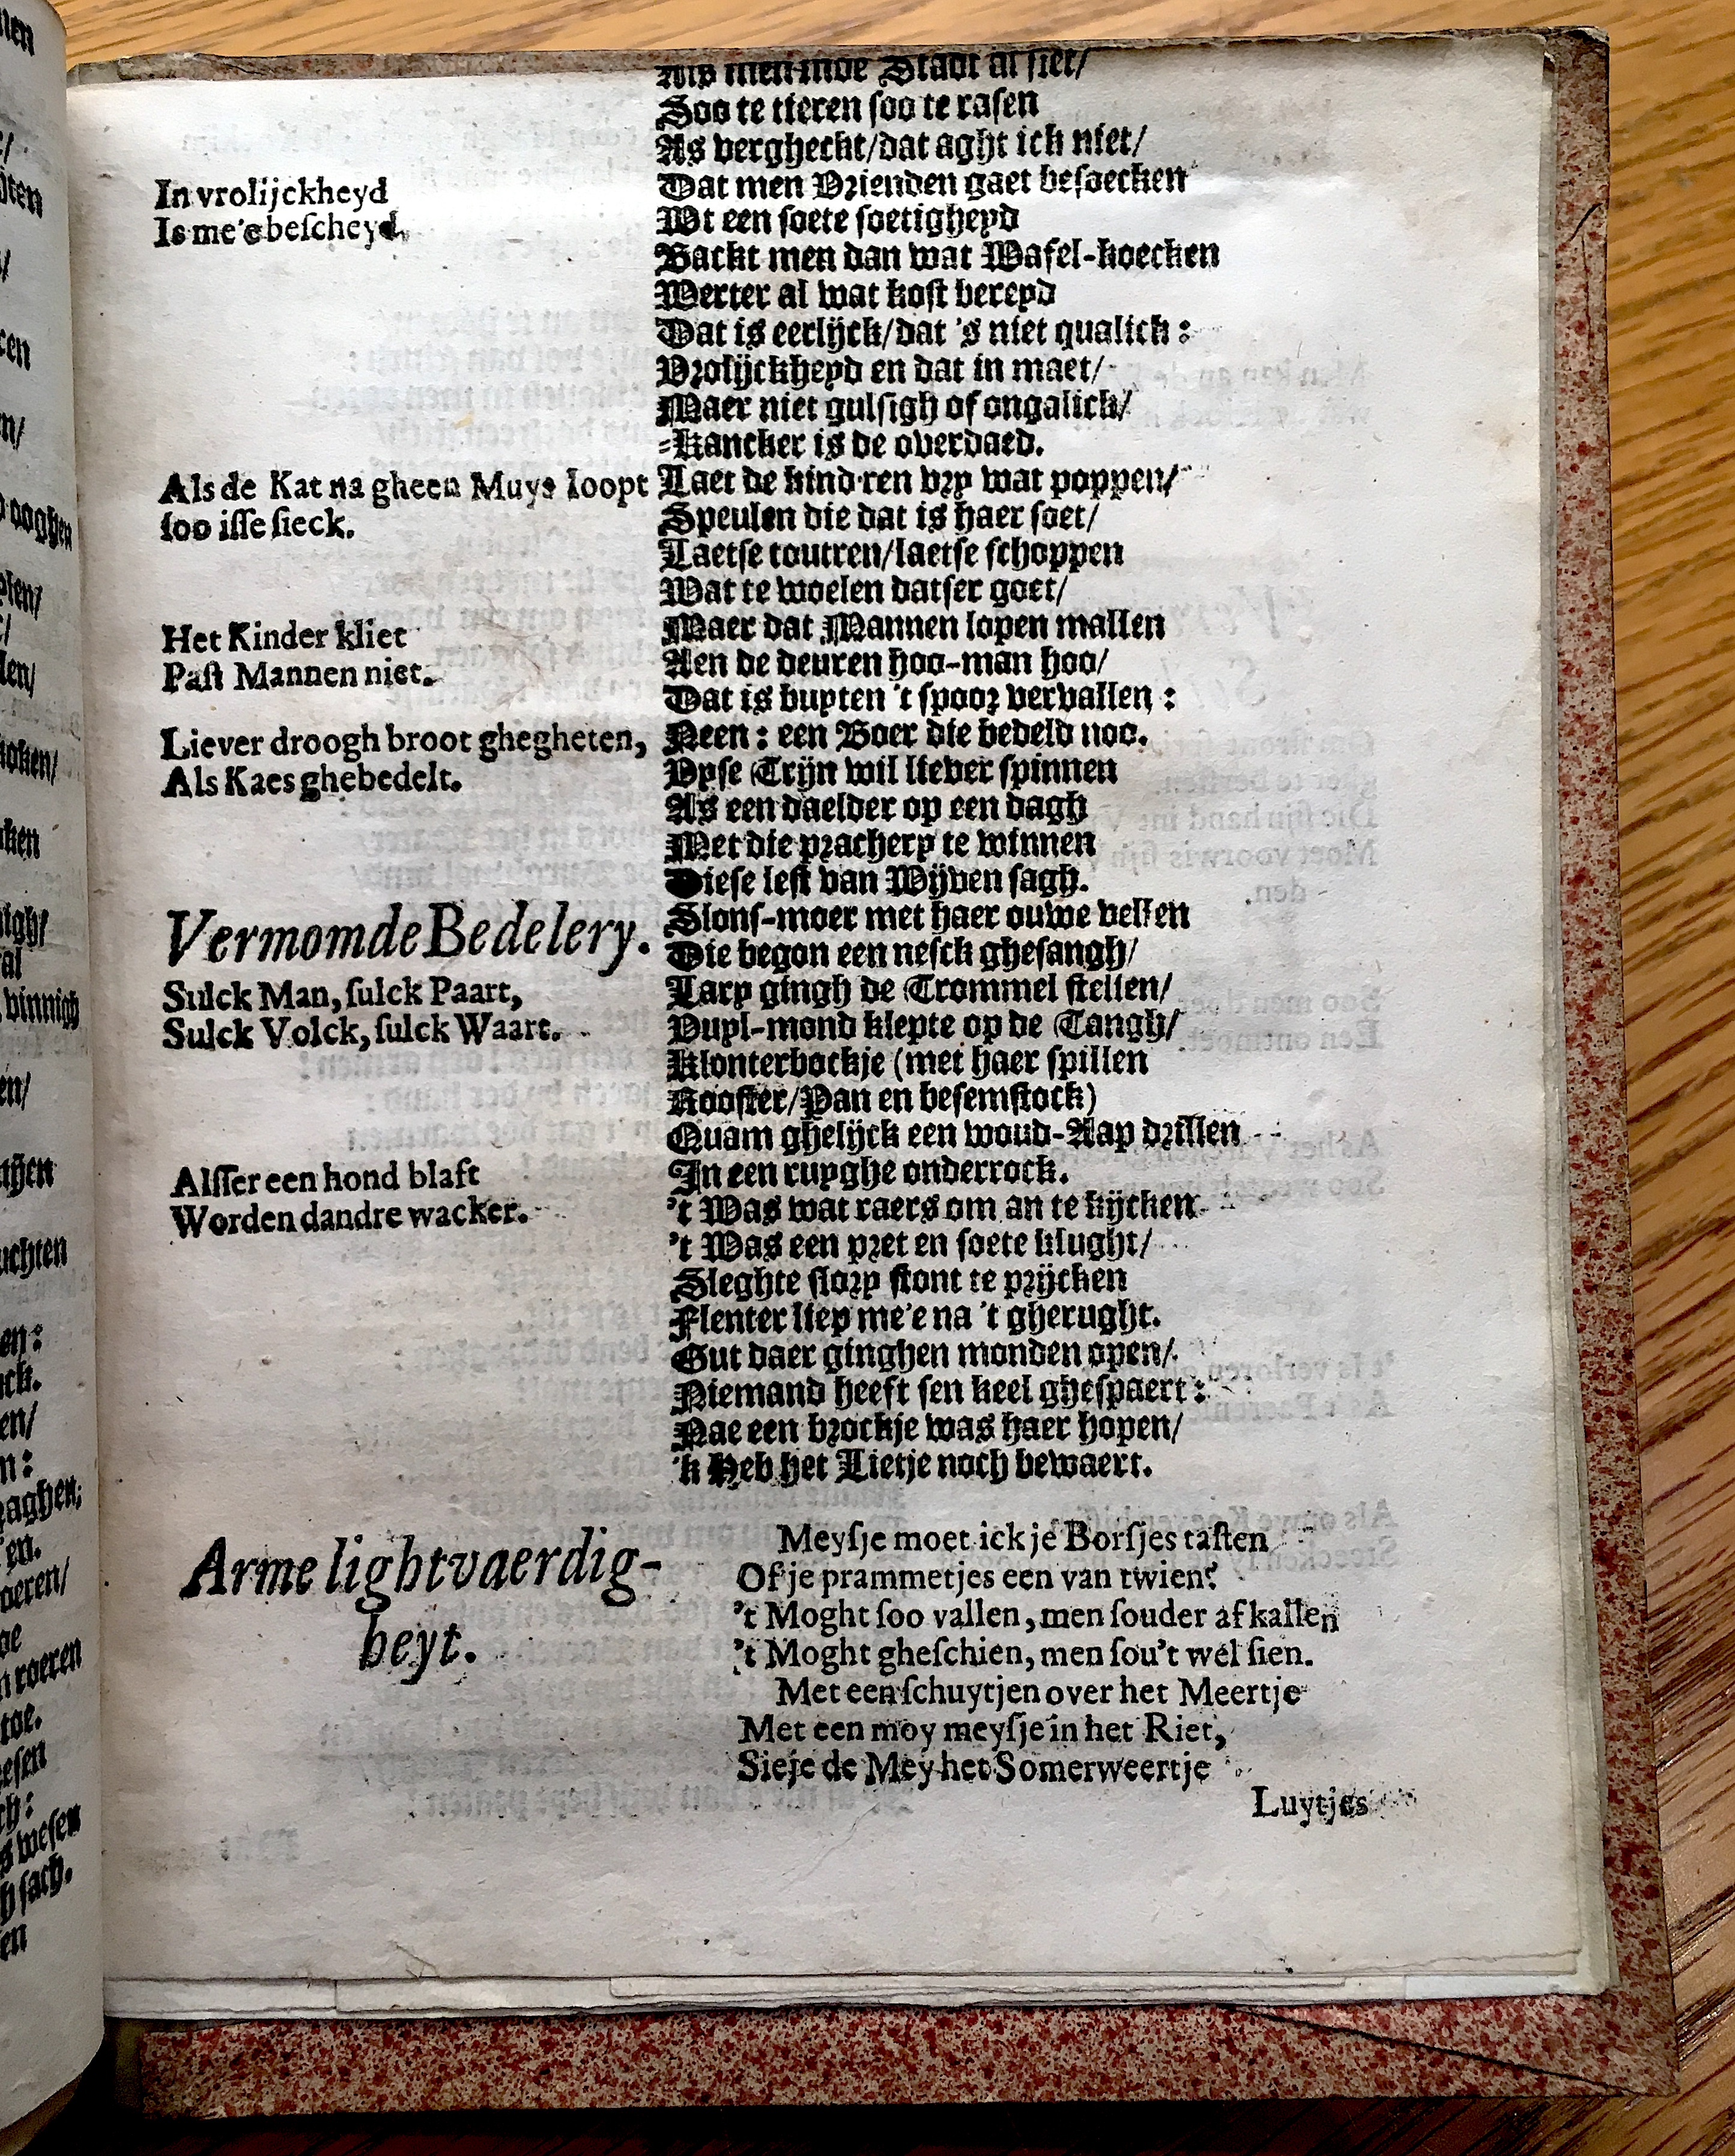 Als men inde Stadt al siet/
Soo te tieren soo te rasen
As vergheckt/dat aght ick niet/
In vrolijckheyd
Is me'e bescheyd.
Dat men Vrienden gaet besoecken
Wt een soete soetigheyd
Backt men dan wat Wafel-koecken
Werter al wat kost bereyd
Dat is eerlijck/dat 's niet qualick:
Vrolijckheyd en dat in maet/
Maer niet gulsigh of ongalick/
-Kancker is de overdaed.
Als de Kat na gheen Muys loopt
soo isse sieck.
Laet de kind'ren vry wat poppen/
Speulen die dat is haer soet/
Laetse toutren/laetse schoppen
Wat te woelen datser goet/
Het Kinder kliet
Past Mannen niet.
Maer dat Mannen lopen mallen
Aen de deuren hoo-man hoo/
Dat is buyten 't spoor vervallen:
Liever droogh broot ghegheten,
Als Kaes ghebedelt.
Neen: een Boer die bedeld noo.
Vyse Trijn wil liever spinnen
As een daelder op een dagh
Met die prachery te winnen
Diese lest van Wijven sagh.
Vermomde Bedelery.
Sulck Man, sulck Paart,
Sulck Volck, sulck Waart.
Slons-moer met haer ouwe vellen
Die begon een nesck ghesangh/
Lary gingh de Trommel stellen/
Vuyl-mond klepte op de Tangh/
Klonterbockje (met haer spillen
Rooster/Pan en besemstock)
Quam ghelijck een woud-Aap drillen
In een ruyghe onderrock.
Alsser een hond blaft
Worden dandre wacker.
't Was wat raers om an te kijcken
't Was een pret en soete klught/
Sleghte slory stont te prijcken
Flenter liep me'e na 't gherught.
Gut daer ginghen monden open/
Niemand heeft sen keel ghespaert:
Nae een brockje was haer hopen/
'k Heb het Lietje noch bewaert.
Arme lightvaerdig-
heyt.
Meysje moet ick je Borsjes tasten
Of je prammetjes een van twien?
't Moght soo vallen, men souder af kallen
't Moght gheschien, men sou't wel sien.
Met een schuytjen over het Meertje
Met een moy meysje in het Riet,
Sieje de Mey het Somerweertje
Luytjes